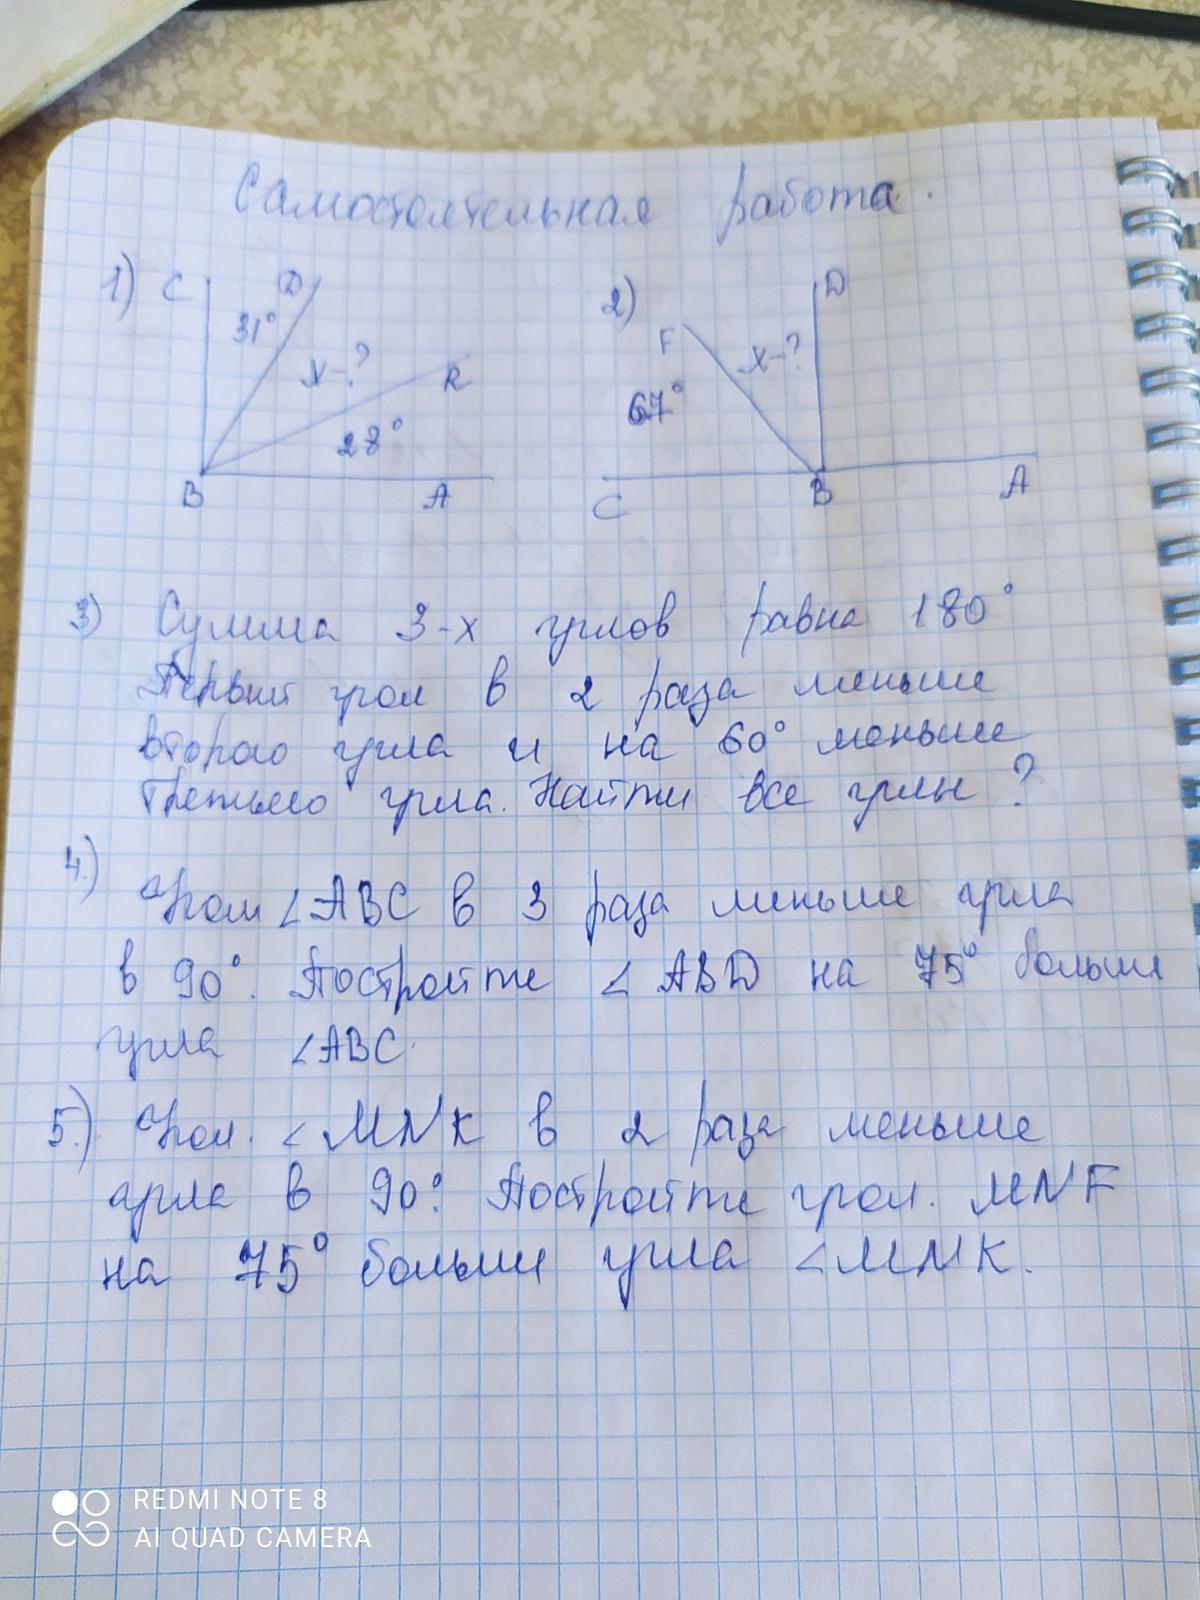 Самостоятельная работа.
1) C D 31° x-? R 28° B A
2) F D x-? 67° C B A
3) Сумма 3-х углов равна 180°
Первый угол в 2 раза меньше
второго угла и на 60° меньше
третьего угла. Найти все углы ?
4.) Угол ∠ABC в 3 раза меньше угла
в 90°. Постройте ∠ABD на 75° больше
угла ∠ABC.
5.) Угол ∠MNK в 2 раза меньше
угла в 90°. Постройте угол. MNF
на 75° больше угла ∠MNK.
REDMI NOTE 8
AI QUAD CAMERA